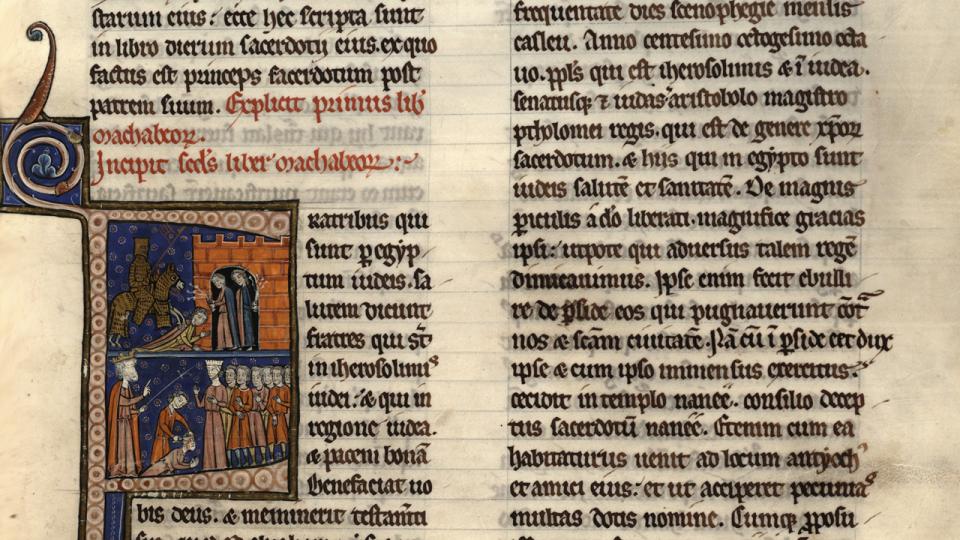 starum eius: ecce hec scripta sunt
in libro dierum sacerdotii eius. ex quo
factus est princeps sacerdotum post
patrem suum. Explicit primus lib̄
machabeoꝝ.
Incipit scd̄s liber machabeoꝝ:~
ratribus qui
sunt ꝑ egyp
tum iudeis. sa
lutem dicunt
fratres qui st̄
in iherosolimis
iudei: & qui in
regione iudea.
& pacem bonā
Benefaciat uo
bis deus. & meminerit testam̄ti
frequentate dies scenophegie mensis
casleu. Anno centesimo octogesimo octa
uo. ppl̄s qui est iherosolimis & ī iudea.
senatusqꝫ ⁊ iudas. aristobolo magistro
ptholomei regis. qui est de genere xp̄oꝝ
sacerdotum. & hiis qui in egypto sunt
iudeis salutē et sanitatē. De magnis
ꝑiculis a dō liberati. magnifice gracias
ipsi: utpote qui aduersus talem regē
dimicauimus. Ipse enim fecit ebulli
re de ꝑside eos qui pugnauerunt cōt̄
nos & scām ciuitatē. Nā cū ī ꝑside et dux
ipse & cum ipso immensus exercitus:
cecidit in templo naneē. consilio decep
tus sacerdotū naneē. Etenim cum ea
habitaturus uenit ad locum antyoch
et amici eius: et ut acciperet pecunias
multas dotis nomine. Cumqꝫ ꝓposu